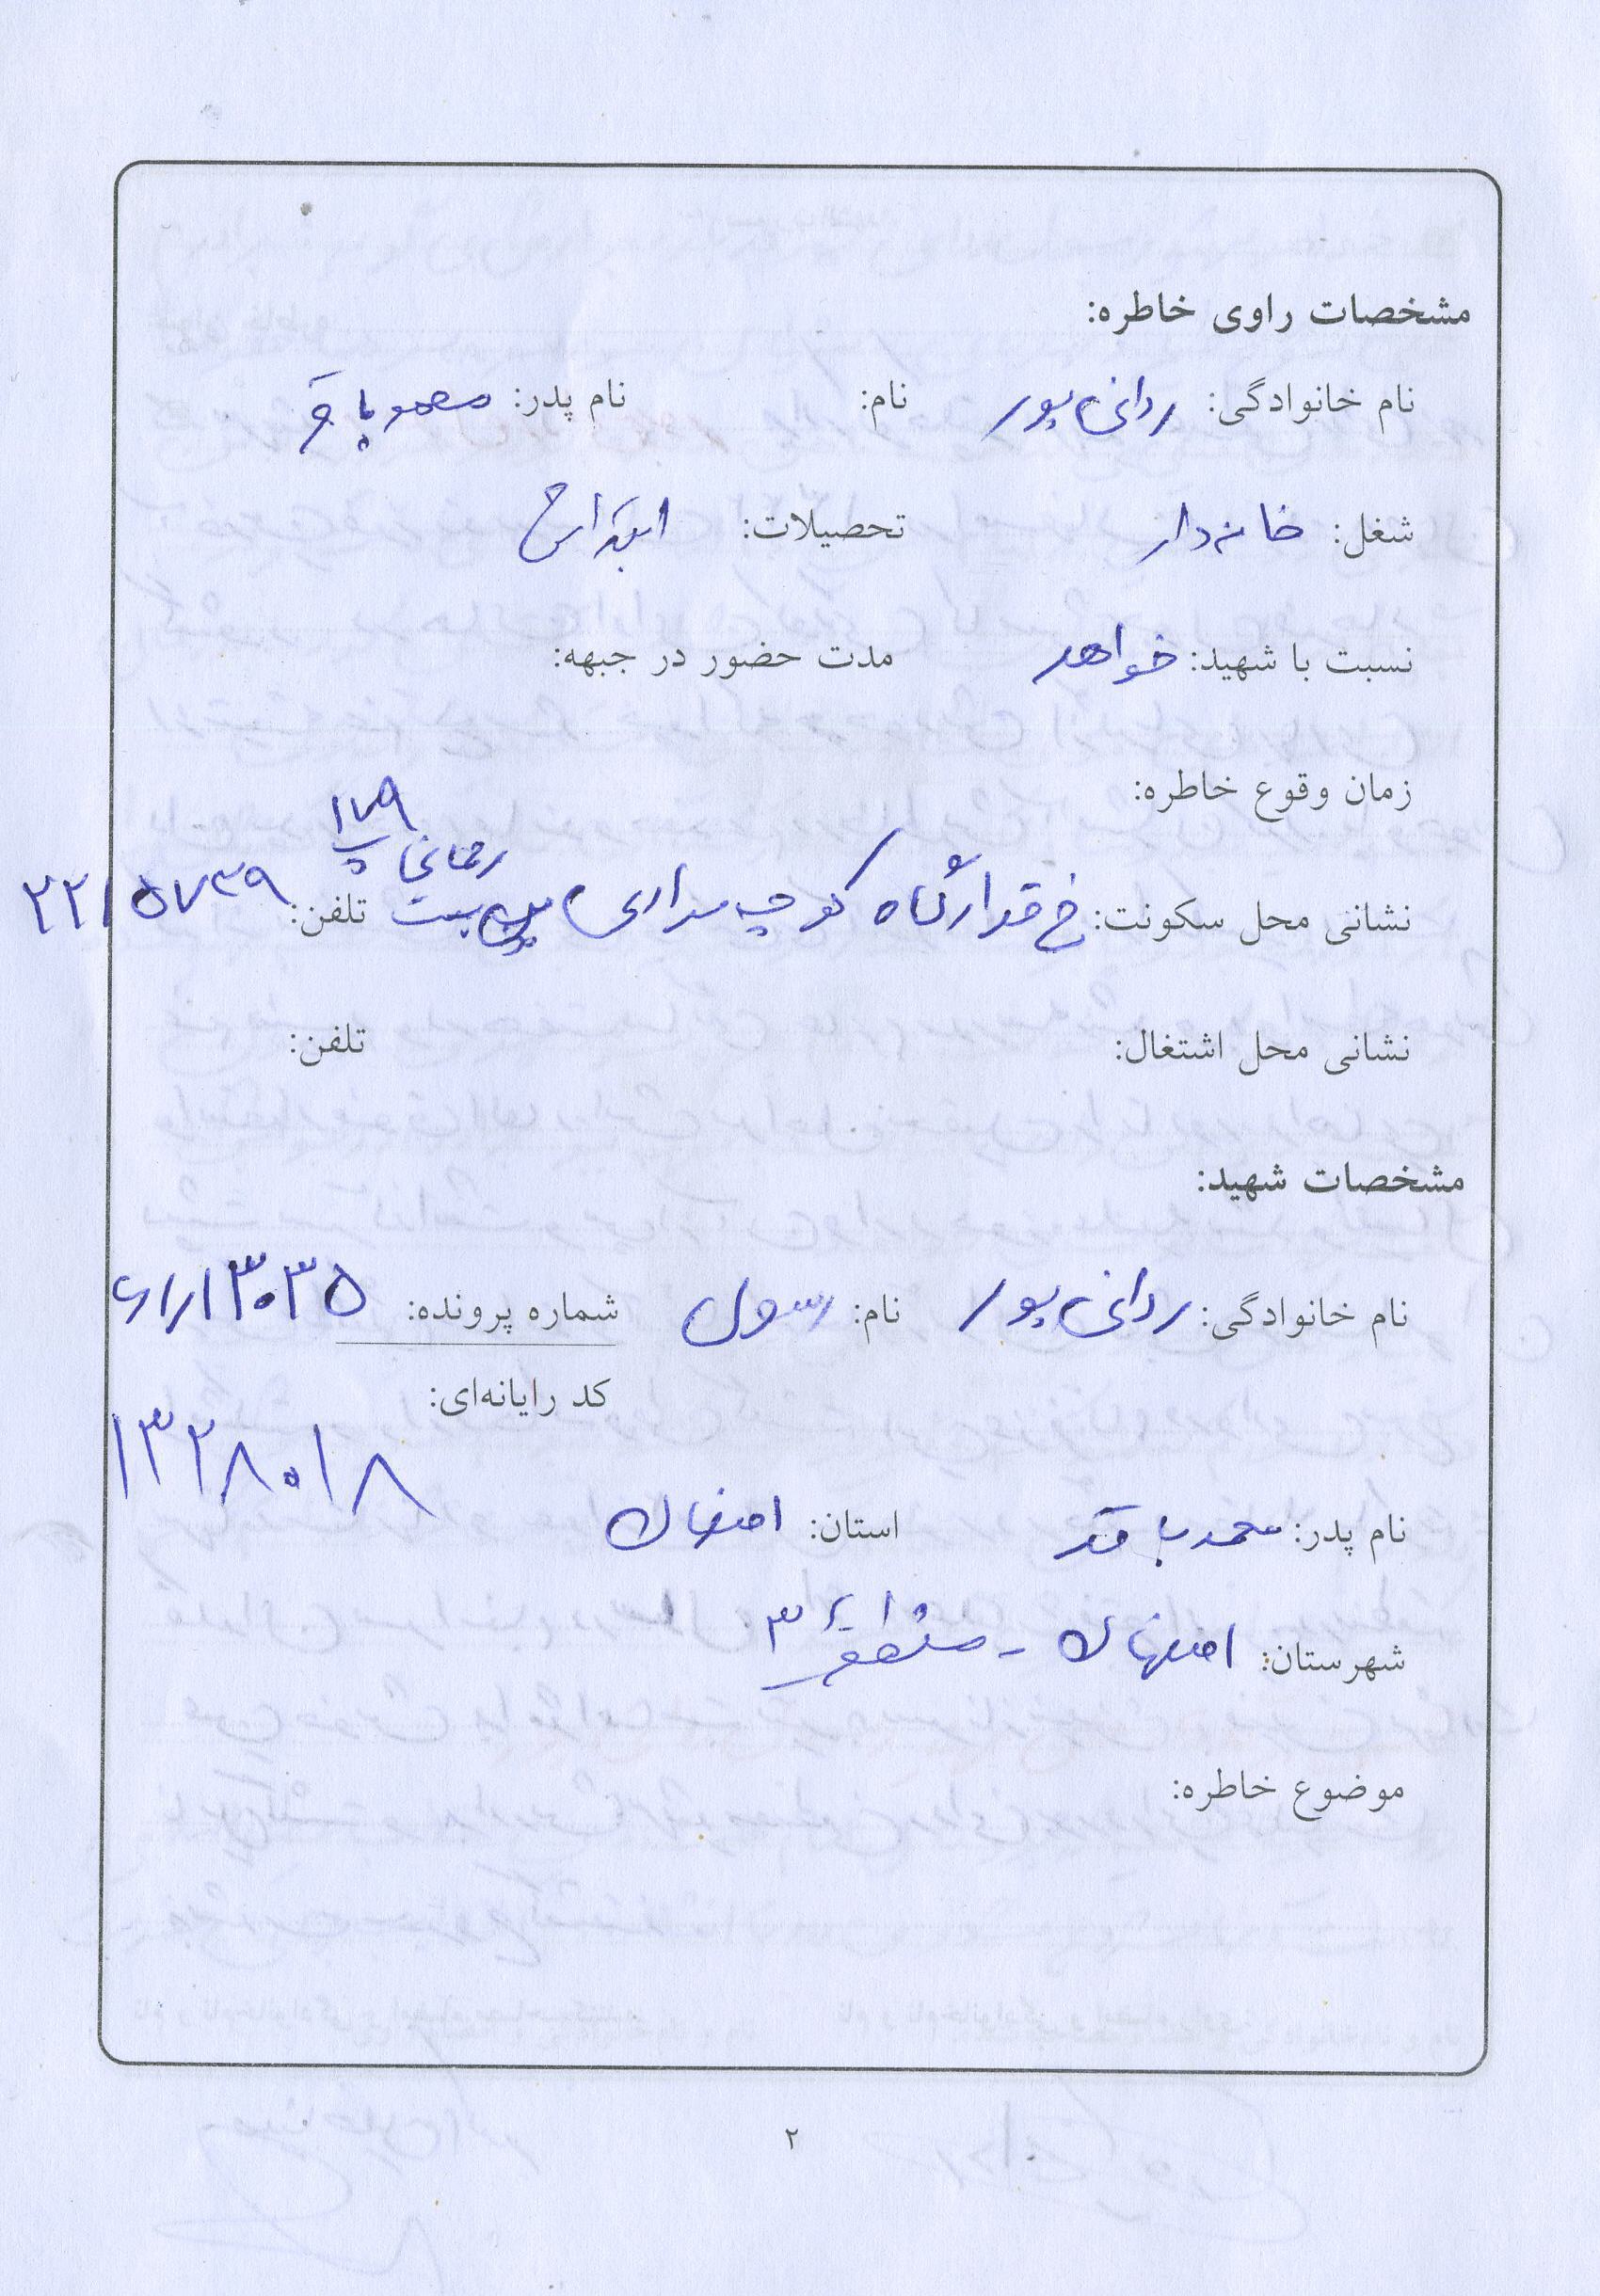 مشخصات راوی خاطره:
نام خانوادگی: ردانی پور نام: نام پدر: محمد باقر
شغل: خانه دار تحصیلات: ابتدایی
نسبت با شهید: خواهر مدت حضور در جبهه:
زمان وقوع خاطره:
نشانی محل سکونت: خ قرارگاه کوچه بست رحمانی پ ۱۷۹ تلفن:
نشانی محل اشتغال: تلفن:
مشخصات شهید:
نام خانوادگی: ردانی پور نام: رسول شماره پرونده:
کد رایانه‌ای: ۱۳۲۸۰۱۸
نام پدر: محمد باقر استان: اصفهان
شهرستان: اصفهان - منطقه ۳
موضوع خاطره:
۲